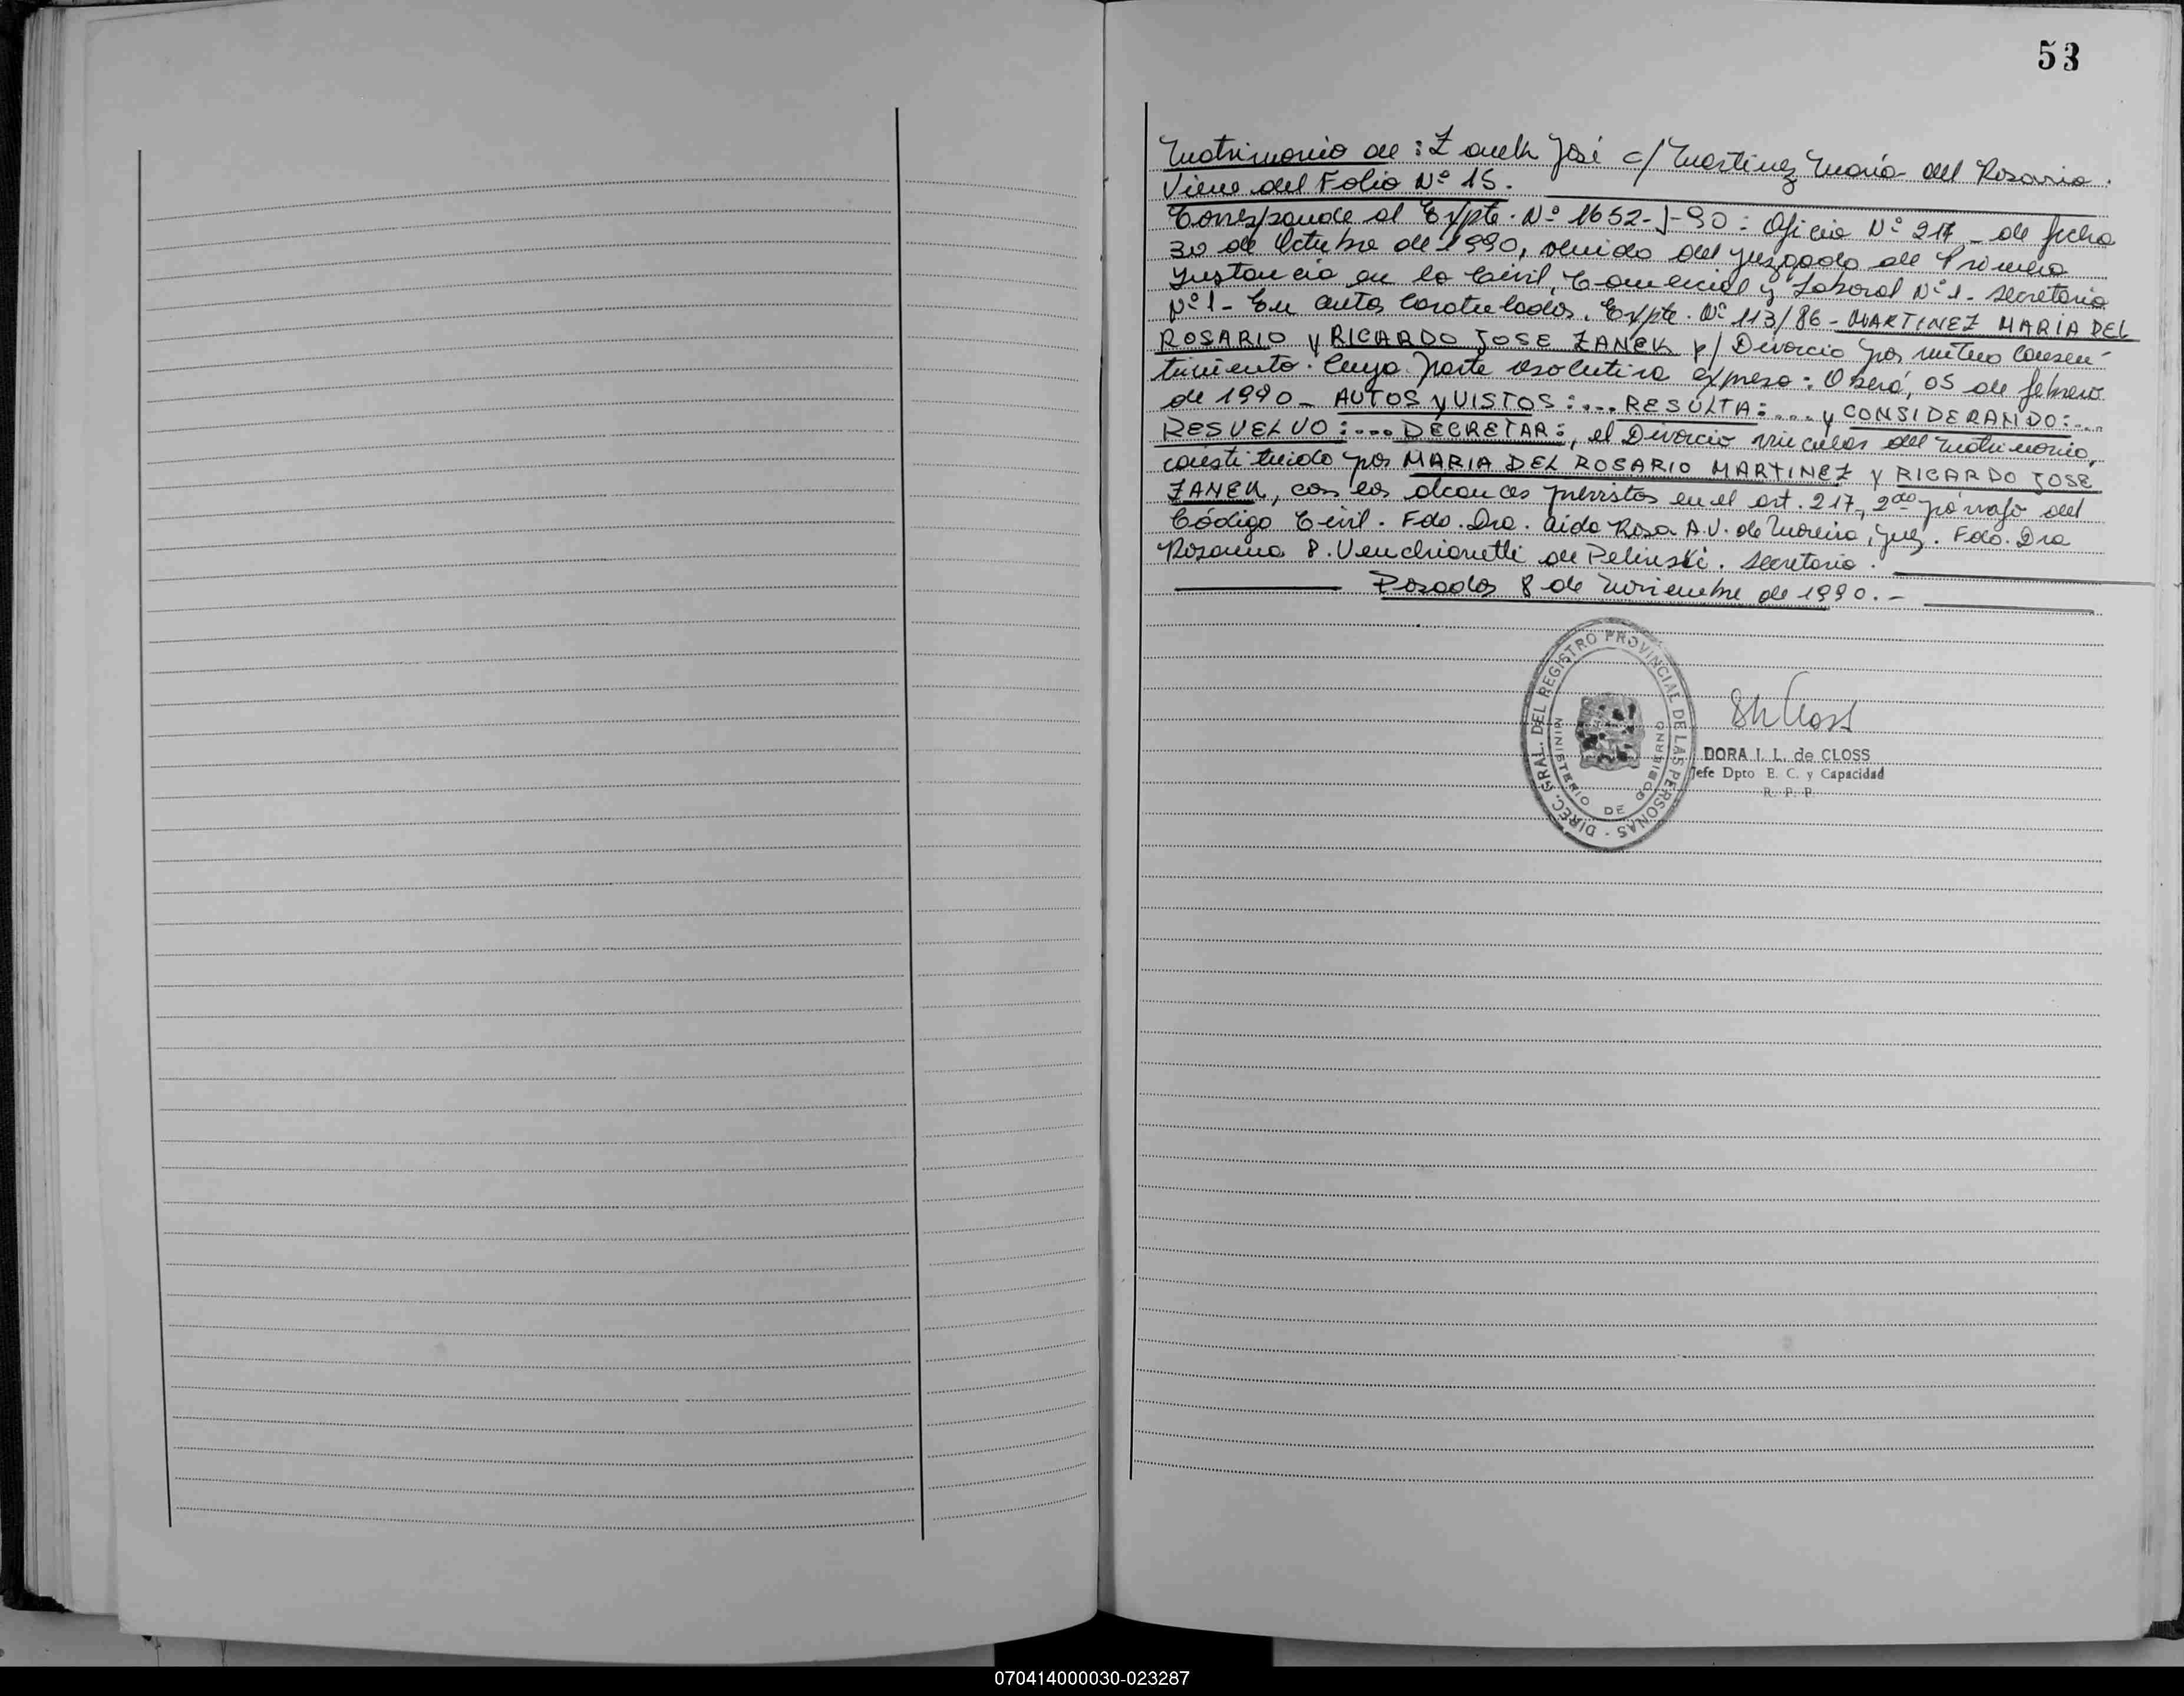 53
Matrimonio de: Zanek José c/ Martinez María del Rosario.
Viene del Folio Nº 15.
Corresponde al Expte. Nº 1652-J-90: Oficio Nº 217 - de fecha
30 de Octubre de 1990, venido del Juzgado de Primera
Instancia en lo Civil, Comercial y Laboral Nº 1 - Secretaria
Nº 1 - En autos Caratulados. Expte. Nº 113/86 - MARTINEZ MARIA DEL
ROSARIO y RICARDO JOSE ZANEK p/ Divorcio por mutuo Consen-
timiento. Cuya parte resolutiva expresa: Oberá, 05 de febrero
de 1990 - AUTOS y VISTOS:... RESULTA:.... y CONSIDERANDO:...
RESUELVO:... DECRETAR:, el Divorcio vincular del Matrimonio,
constituido por MARIA DEL ROSARIO MARTINEZ y RICARDO JOSE
ZANEK, con los alcances previstos en el art. 217, 2do párrafo del
Código Civil. Fdo. Dra. Aida Rosa A.V. de Moreira, Juez. Fdo. Dra
B. Venchiarutti de Pelinski. Secretaria.
Posadas 8 de Noviembre de 1990.-
DIREC. GRAL. DEL REGISTRO PROVINCIAL DE LAS PERSONAS -
MINISTERIO DE GOBIERNO
DORA I. L. de CLOSS
Jefe Dpto E. C. y Capacidad
R. P. P.
070414000030-023287